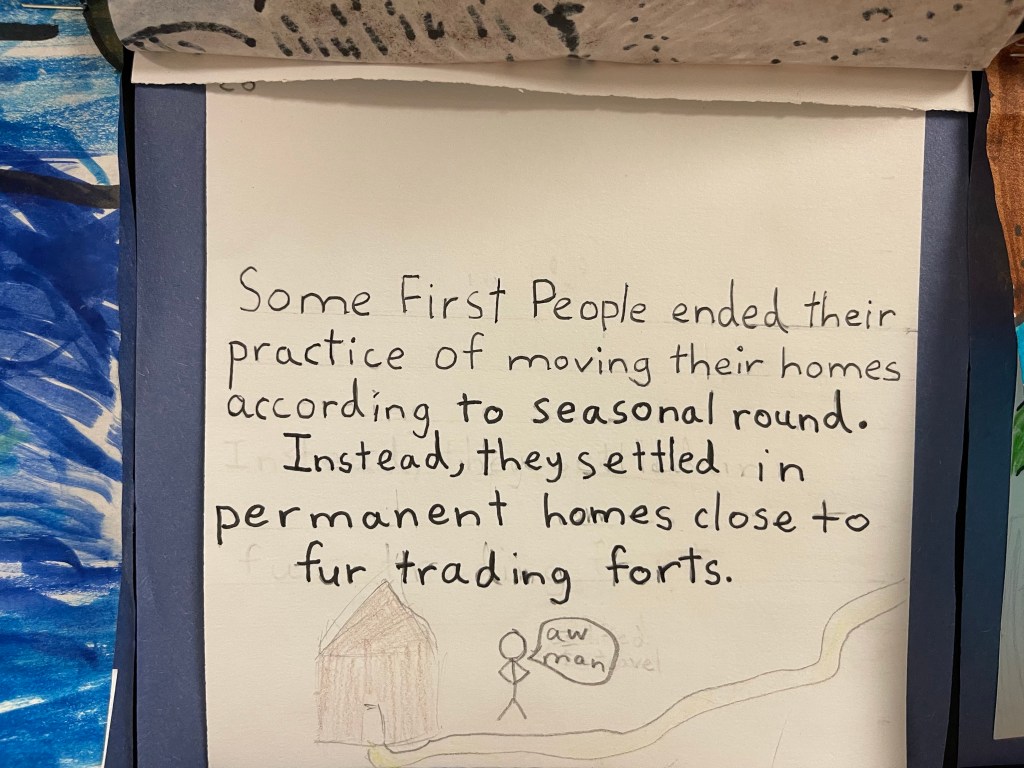 Some First People ended their
practice of moving their homes
according to seasonal round.
Instead, they settled in
permanent homes close to
fur trading forts.
aw
man